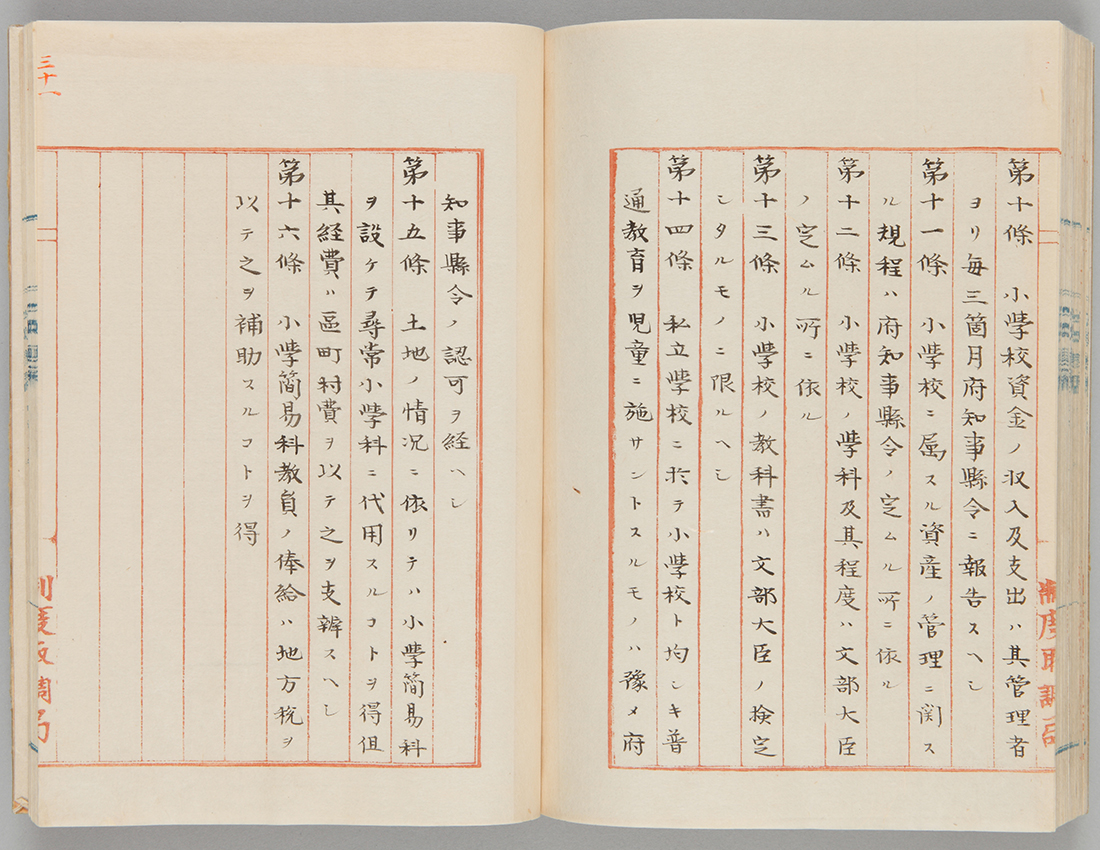 第十條　小學校資金ノ収入及支出ハ其管理者
ヨリ毎三箇月府知事縣令ニ報告スヘシ
第十一條　小學校ニ属スル資産ノ管理ニ関ス
ル規程ハ府知事縣令ノ定ムル所ニ依ル
第十二條　小學校ノ學科及其程度ハ文部大臣
ノ定ムル所ニ依ル
第十三條　小學校ノ教科書ハ文部大臣ノ検定
シタルモノニ限ルヘシ
第十四條　私立學校ニ於テ小學校ト均シキ普
通教育ヲ児童ニ施サントスルモノハ豫メ府
知事縣令ノ認可ヲ経ヘシ
第十五條　土地ノ情況ニ依リテハ小學簡易科
ヲ設ケテ尋常小學科ニ代用スルコトヲ得但
其経費ハ區町村費ヲ以テ之ヲ支辨スヘシ
第十六條　小學簡易科教員ノ俸給ハ地方税ヲ
以テ之ヲ補助スルコトヲ得
三十一